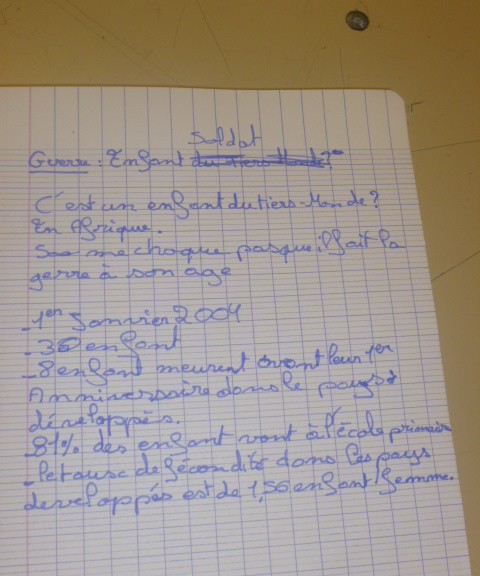 Soldat
Guerre : Enfant du tiers Monde ?
C'est un enfant du tiers-Monde ?
En Afrique.
Sa me choque pasque il fait la
gerre à son age
-1er Janvier 2004
-36 enfant
-8 enfant meurent avant leur 1er
Anniversaire dans le pays
développés.
-81% des enfant vont à l'école primaire
-Le tause de fécondité dans les pays
developpés est de 1,56 enfant femme.